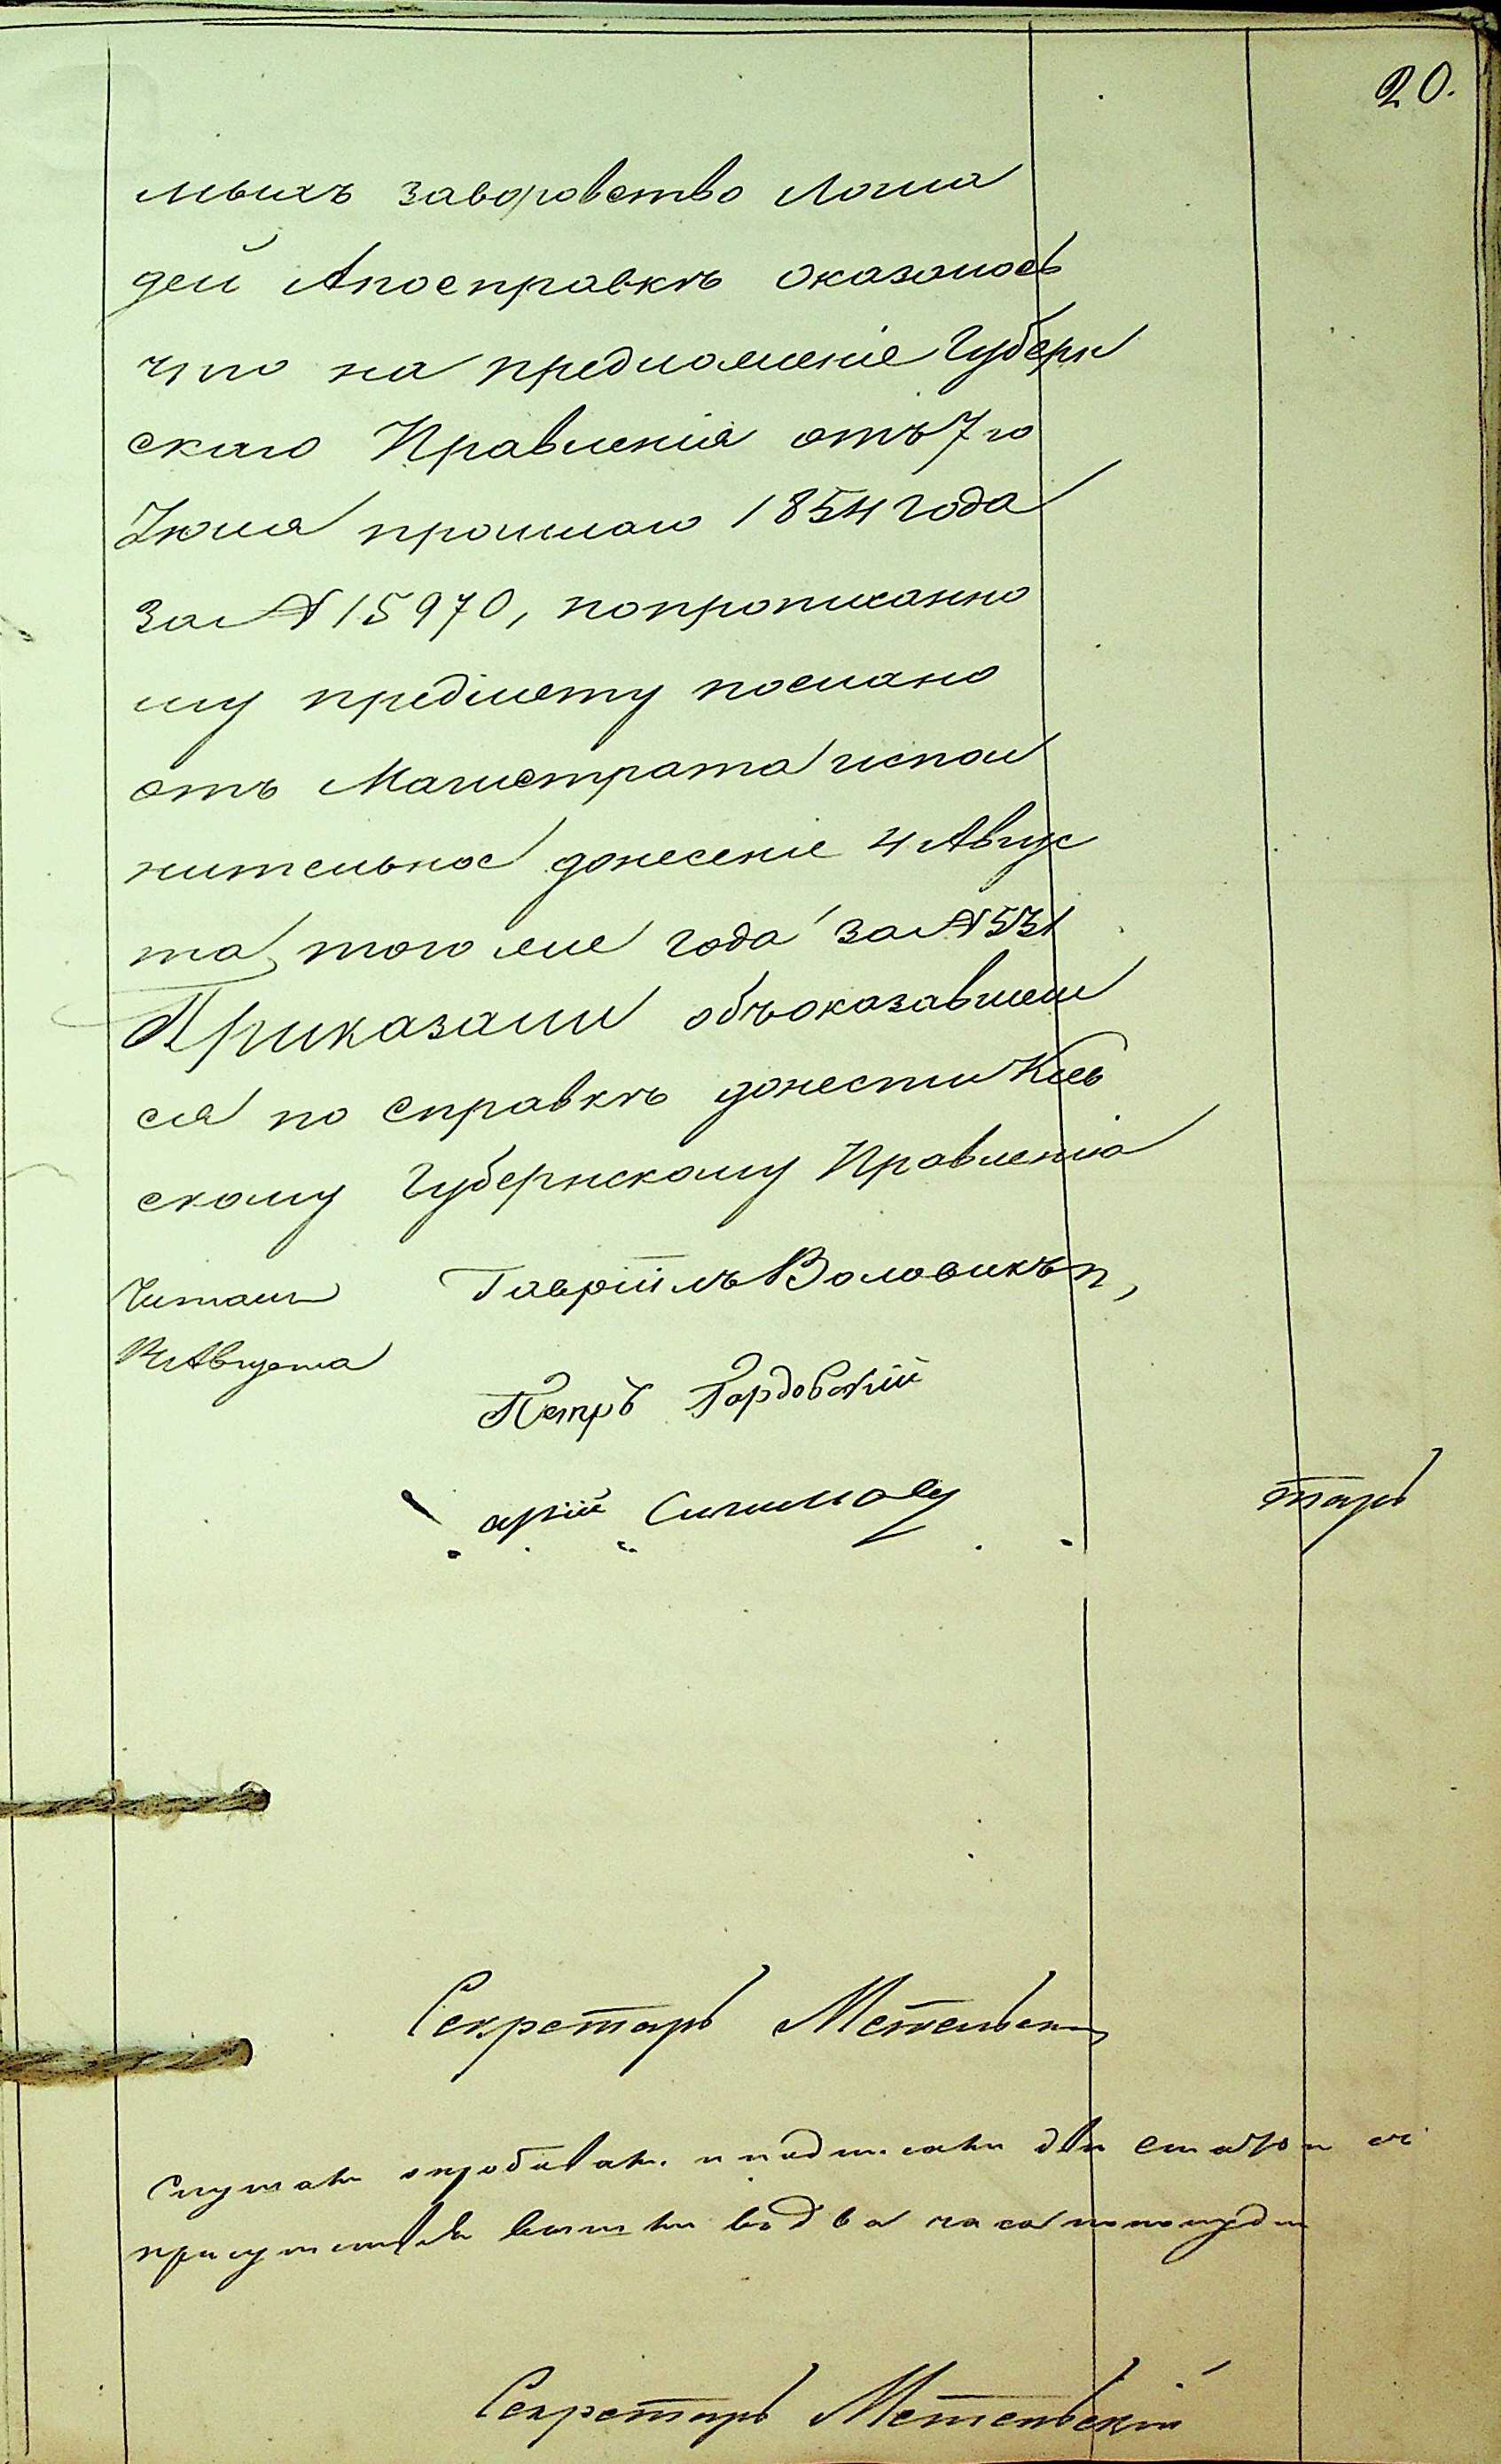 20.
мыхъ заворовство лоша
дей Апосправкѣ оказалось
что на предложеніе Губерн
скаго Правленія отъ 7 го
Іюля прошлаго 1854 года
За № 15970, попрописанно
му предмету послано
отъ Магистрата испол
нительное донесеніе 4 Авгус
та того же года за № 531
Приказали объоказавшем
ся по справкѣ донести Кіев
скому Губернскому Правленію
Гавріилъ Воловикъ
Читали
Августа
Петръ Гордовскій
Секретарь Метельскій
Слушали опробовали и подписали двѣ статьи изъ
присутствія вышли въ два часа пополудни
Секретарь Метельскій